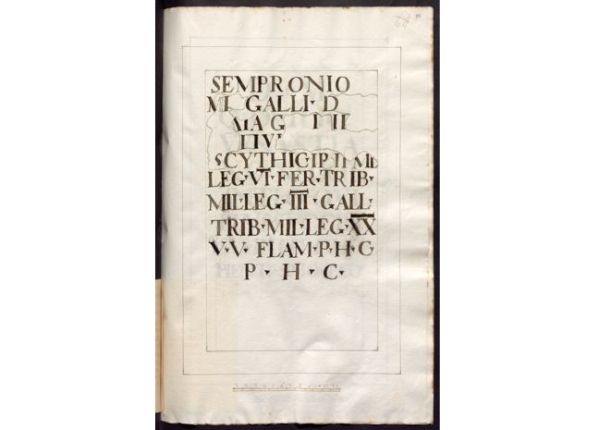 SEMPRONIO
M GALLI · D
MAG III
SCYTHICI
LEG · VI · FER · TRIB ·
MIL · LEG · III · GALL ·
TRIB · MIL · LEG · XX
V · V · FLAM · P · H · C
P · H · C ·